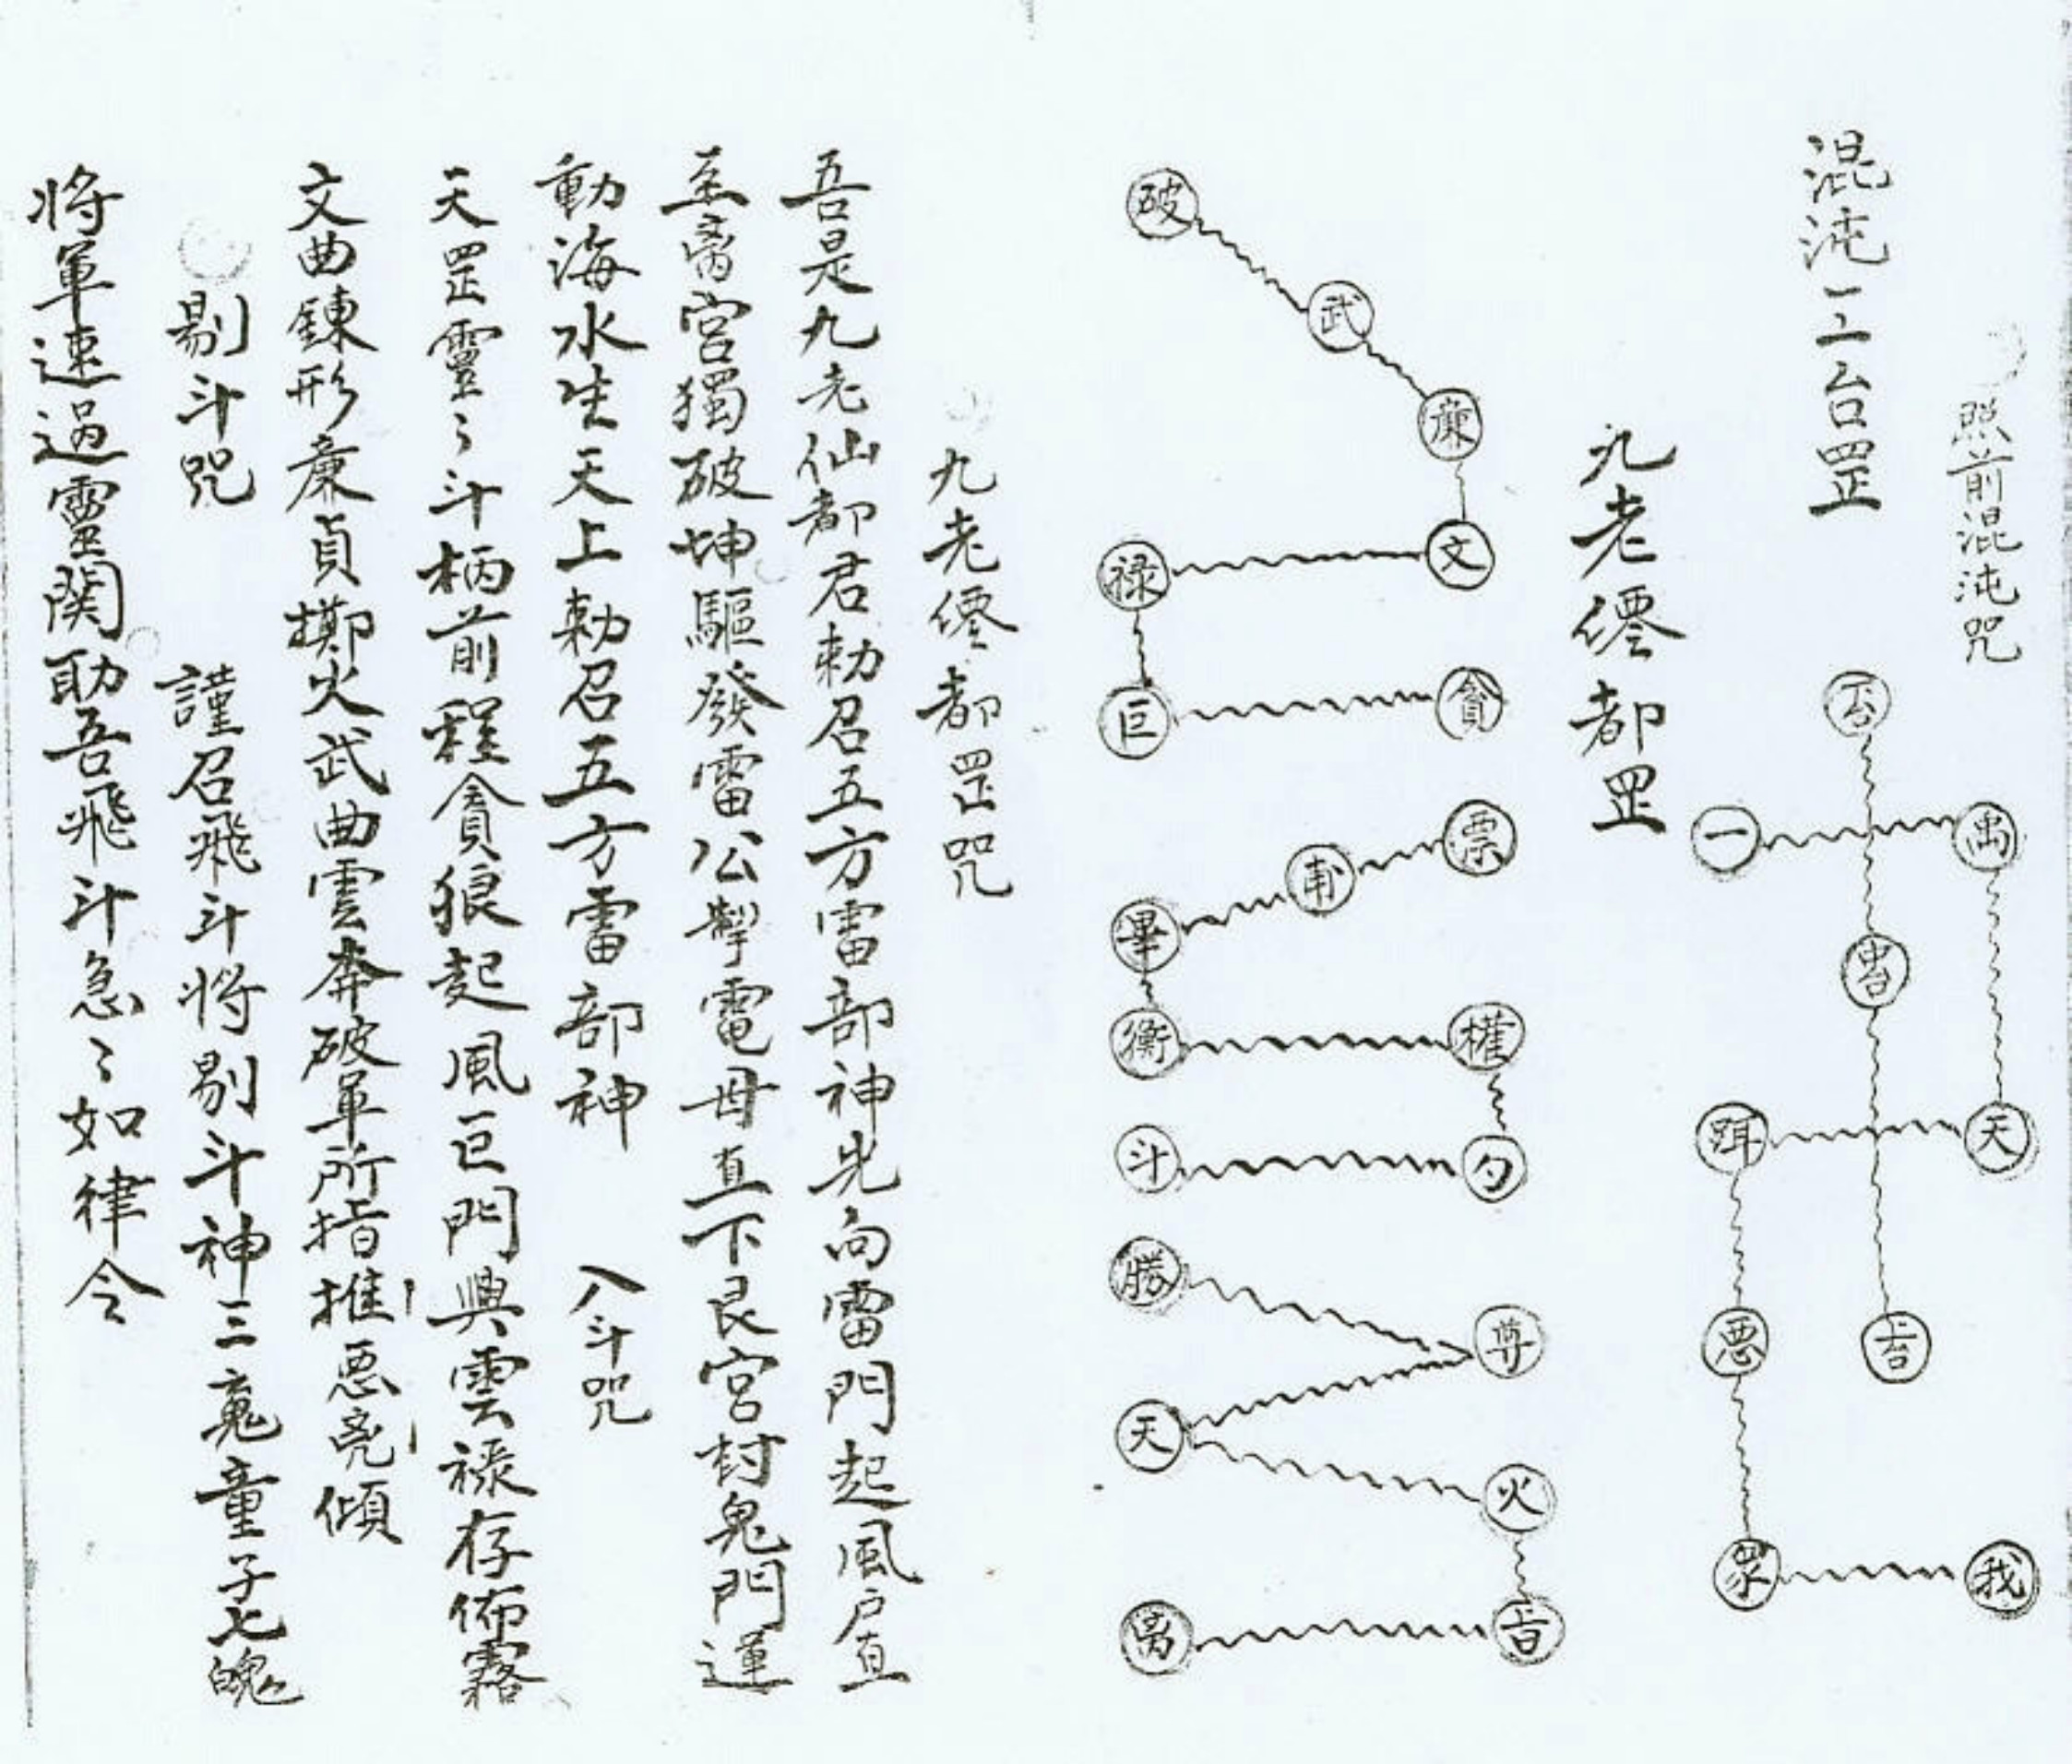 照前混沌咒
混沌一工台罡
禹
一
天
我
衆
悪
吉
九老僊都罡
破
武
廉
文
禄
巨
貪
票
甫
畢
衡
權
勺
斗
勝
尊
天
火
离
九老僊都罡咒
吾是九老仙都君勅召五方雷部神先向雷門起風户直
至离宮獨破坤驅發雷公掣電母直下艮宮封鬼門運
動海水生天上勅召五方雷部神 入斗咒
天罡靈〻斗柄前程貪狼起風巨門興雲禄存佈霧
文曲錬形廉貞擲火武曲雲奔破軍所指摧悪兇傾
剔斗咒 謹召飛斗将剔斗神三魂童子七魄
将軍速過靈関助吾飛斗急〻如律令